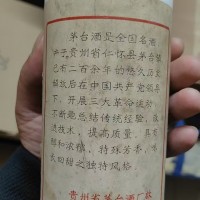 茅台酒是全国名酒
产于贵州省仁怀县茅台镇
已有二百余年的悠久历史
解放后在中国共产党领导
下开展三大革命运动
不断总结传统经验
进技术，提高质量，具有
醇和浓郁，特殊芳香，味
长回甜之独特风格。
贵州省茅台酒厂